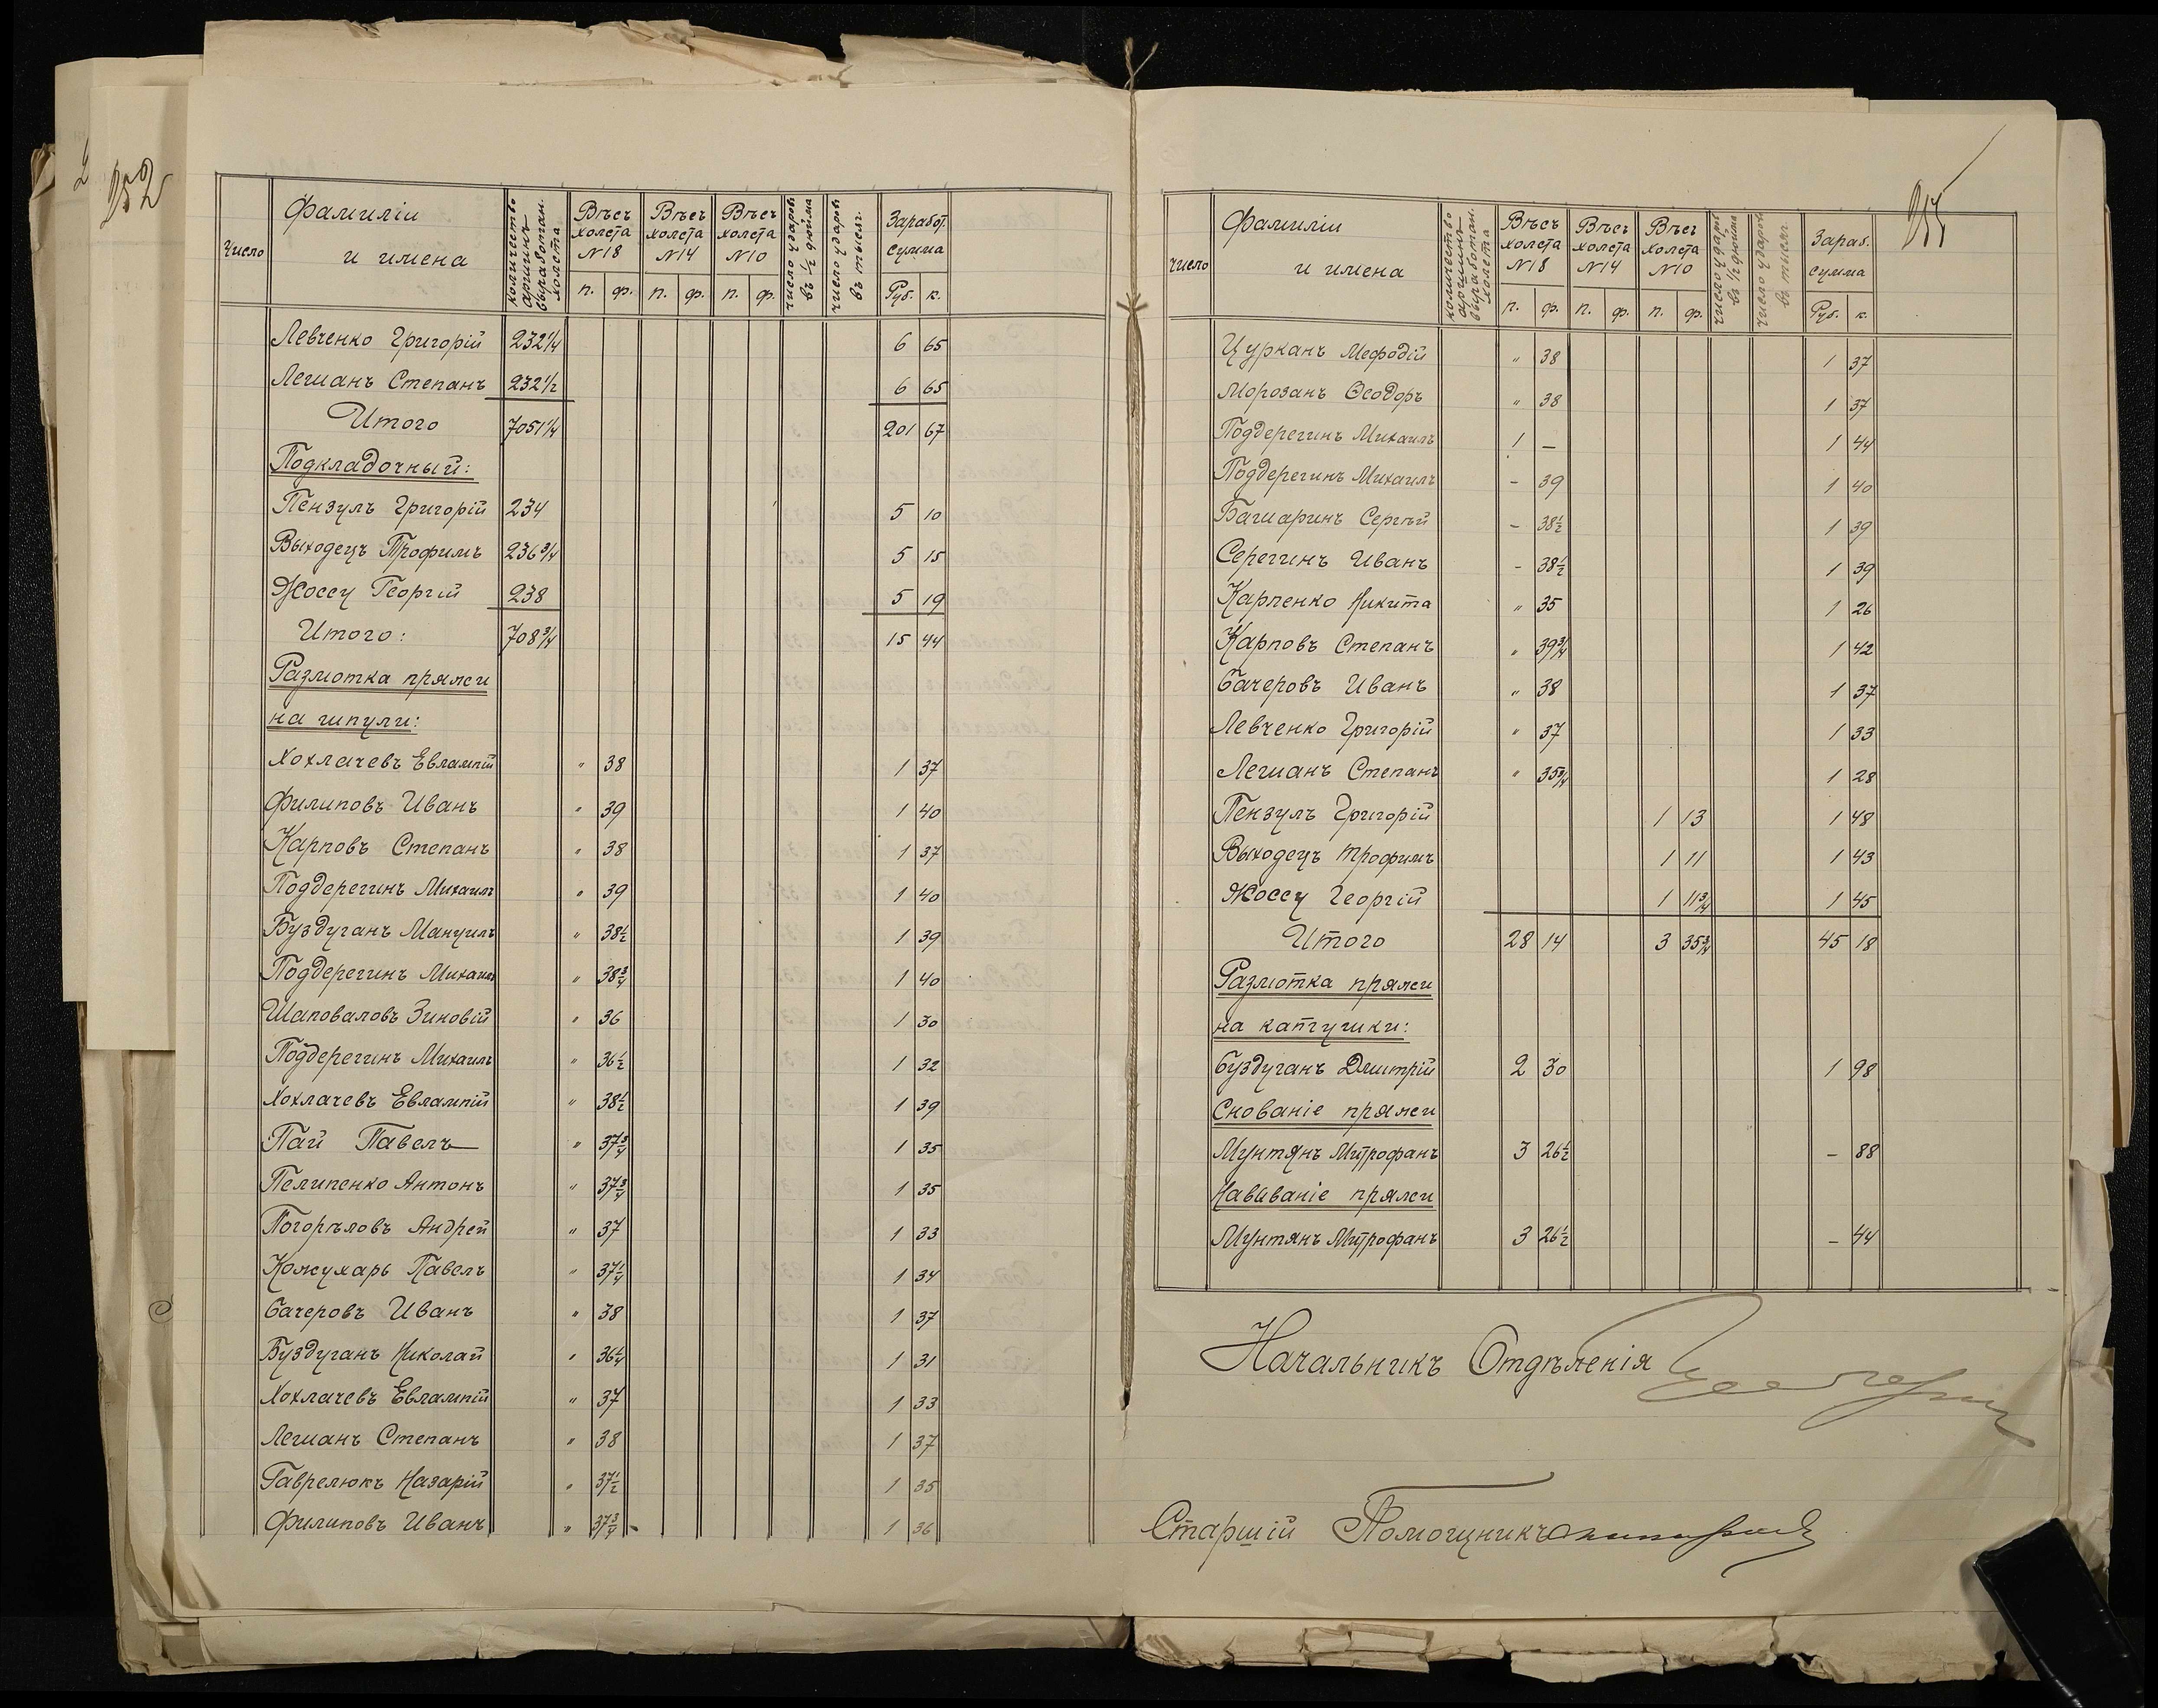 252
Число
Фамиліи
и имена
количество аршинъ выработан. холста
Вѣсъ холста №18
Вѣсъ холста №14
Вѣсъ холста №10
число ударовъ въ ½ дюйма
число ударовъ въ тысяч.
Заработ. сумма
п. ф. п. ф. п. ф. Руб. к.
Левченко Григорій 232¼ 6 65
Легманъ Степанъ 232½ 6 65
Итого 7051¼ 201 67
Подкладочный:
Пензулъ Григорій 234 5 10
Выходецъ Трофимъ 236¾ 5 15
Жоссу Георгій 238 5 19
Итого: 708¾ 15 44
Размотка пряжи
на шпули:
Хохлачевъ Евлампій " 38 1 37
Филиповъ Иванъ " 39 1 40
Карповъ Степанъ " 38 1 37
Поддерегинъ Михаилъ " 39 1 40
Буздуганъ Мануилъ " 38½ 1 39
Поддерегинъ Михаилъ " 38¾ 1 40
Шаповаловъ Зиновій " 36 1 30
Поддерегинъ Михаилъ " 36½ 1 32
Хохлачевъ Евлампій " 38½ 1 39
Пай Павелъ " 37¾ 1 35
Пелипенко Антонъ " 37¾ 1 35
Погорѣловъ Андрей " 37 1 33
Кожухарь Павелъ " 37¼ 1 34
Бачеровъ Иванъ " 38 1 37
Буздуганъ Николай " 36¼ 1 31
Хохлачевъ Евлампій " 37 1 33
Легманъ Степанъ " 38 1 37
Гаврелюкъ Назарій " 37½ 1 35
Филиповъ Иванъ " 37¾ 1 36
255
число
Фамиліи
и имена
количество аршинъ выработан. холста
Вѣсъ холста №18
Вѣсъ холста №14
Вѣсъ холста №10
число ударъ въ ½ дюйма
число ударовъ въ тысяч.
Зараб. сумма
п. ф. п. ф. п. ф. Руб. к.
Цурканъ Мефодій " 38 1 37
Морозанъ Ѳеодоръ " 38 1 37
Поддерегинъ Михаилъ 1 – 1 44
Поддерегинъ Михаилъ – 39 1 40
Багмаринъ Сергѣй – 38½ 1 39
Серегинъ Иванъ – 38½ 1 39
Карленко Никита " 35 1 26
Карповъ Степанъ " 39¾ 1 42
Бачеровъ Иванъ " 38 1 37
Левченко Григорій " 37 1 33
Легманъ Степанъ " 35¾ 1 28
Пензулъ Григорій 1 13 1 48
Выходецъ Трофимъ 1 11 1 43
Жоссу Георгій 1 11¾ 1 45
Итого 28 14 3 35¾ 45 18
Размотка пряжи
на катушки:
Буздуганъ Дмитрій 2 30 1 98
Снованіе пряжи
Мунтянъ Митрофанъ 3 26½ – 88
Навиваніе пряжи
Мунтянъ Митрофанъ 3 26½ – 44
Начальникъ Отдѣленія
Старшій Помощникъ